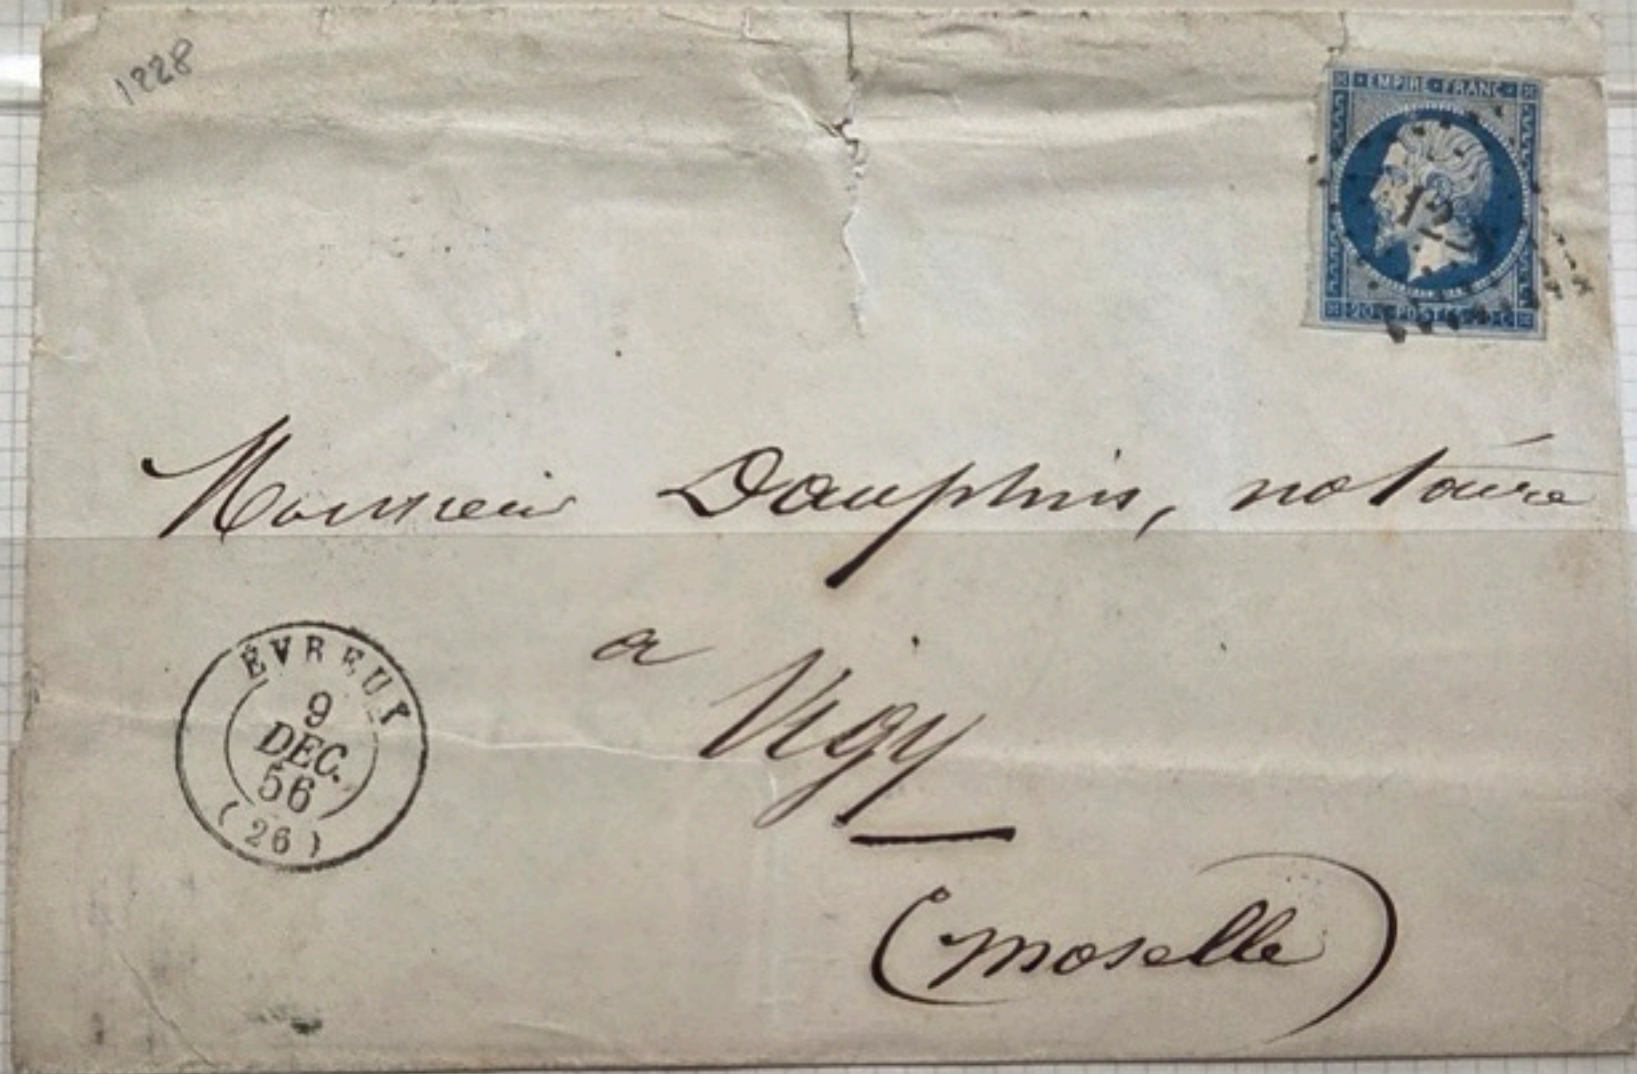 1228
EMPIRE FRANC
20 c POSTES 20 c
Monsieur Dauphin, notaire
a Vigy
(moselle)
ÉVREUX
9
DEC.
56
(26)